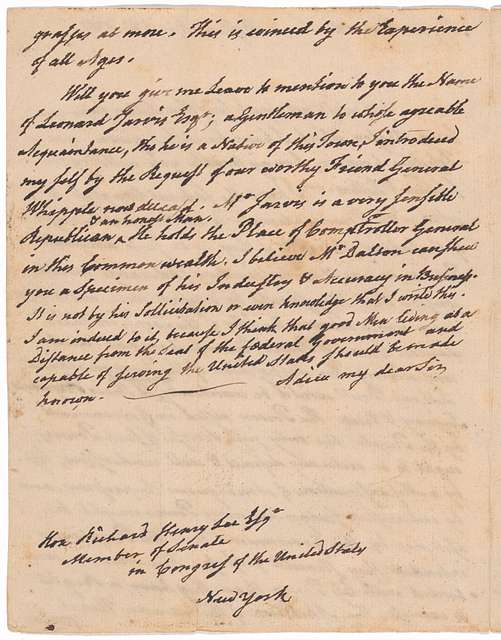 grasps at more. This is evinced by the Experience
of all Ages.
Will you give me Leave to mention to you the Name
of Leonard Jarvis Esqr; a Gentleman to whose agreable
Acquaintance, tho he is a Native of this Town, I introduced
my self by the Request of our worthy Friend General
Whipple now deceasd. Mr Jarvis is a very sensible
Republican ‸ & an honest Man. He holds the Place of Comptroller General
in this Common wealth. I believe Mr Dalton can shew
you a Specimen of his Industry & Accuracy in Business.
It is not by his Sollicitation or even knowledge that I write this.
I am induced to it, because I think that good Men living at a
Distance from the Seat of the fœderal Government and
capable of serving the United States should be made
known.
Adieu my dear Sir
Hon Rd Richard Henry Lee Esqr
Member of Senate
in Congress of the United States
New York